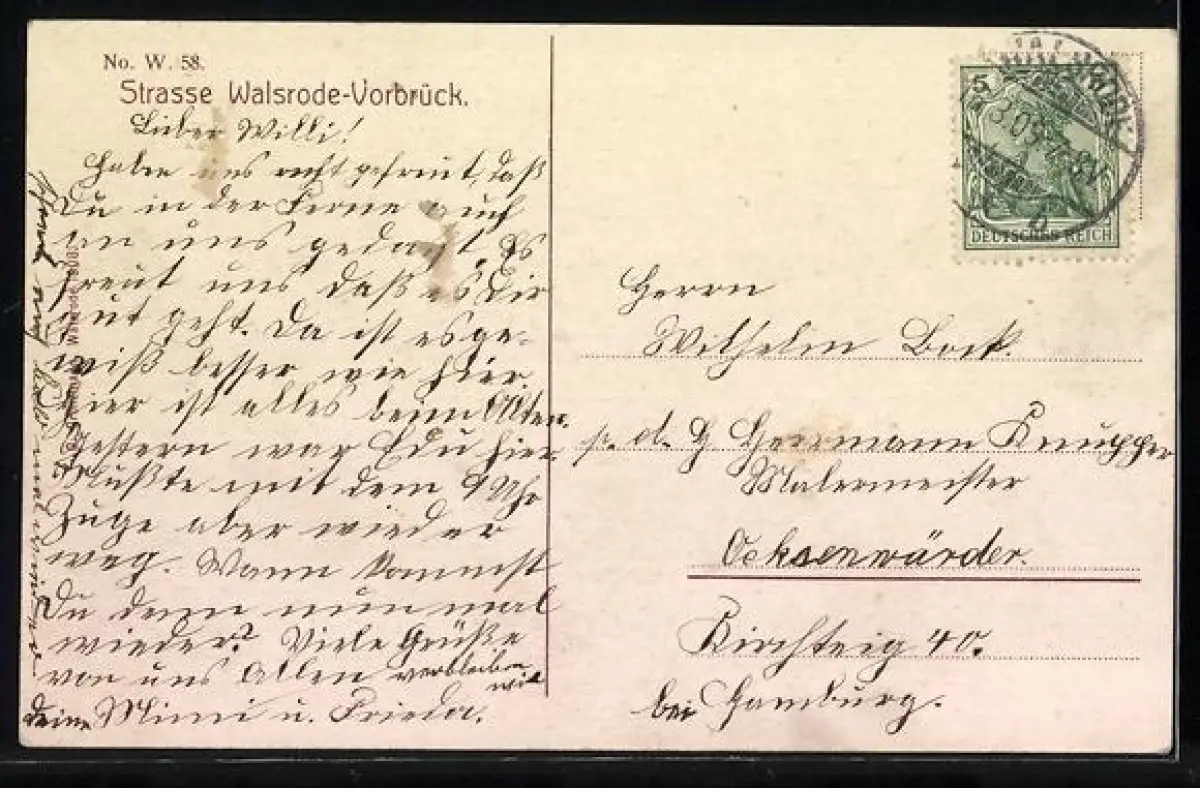 No. W. 58.
Strasse Walsrode-Vorbrück.
Lieber Willi!
Haben uns recht gefreut, daß
Du in der Ferne auch
an uns gedacht. Es
freut uns daß es Dir
gut geht. Da ist es ge-
wiß besser wie hier.
Hier ist alles beim Alten.
Gestern war Edu hier
Mußte mit dem 9 Uhr
Zuge aber wieder
weg. Wann kommst
Du denn nun mal
wieder? Viele Grüße
von uns Allen verbleiben
wir
Deine Mimi u. Frieda.
DEUTSCHES REICH
5
Herrn
Wilhelm Bock.
p. d. H Herrmann Knupper
Malermeister
Ochsenwärder.
Kirchteig 40.
bei Hamburg.